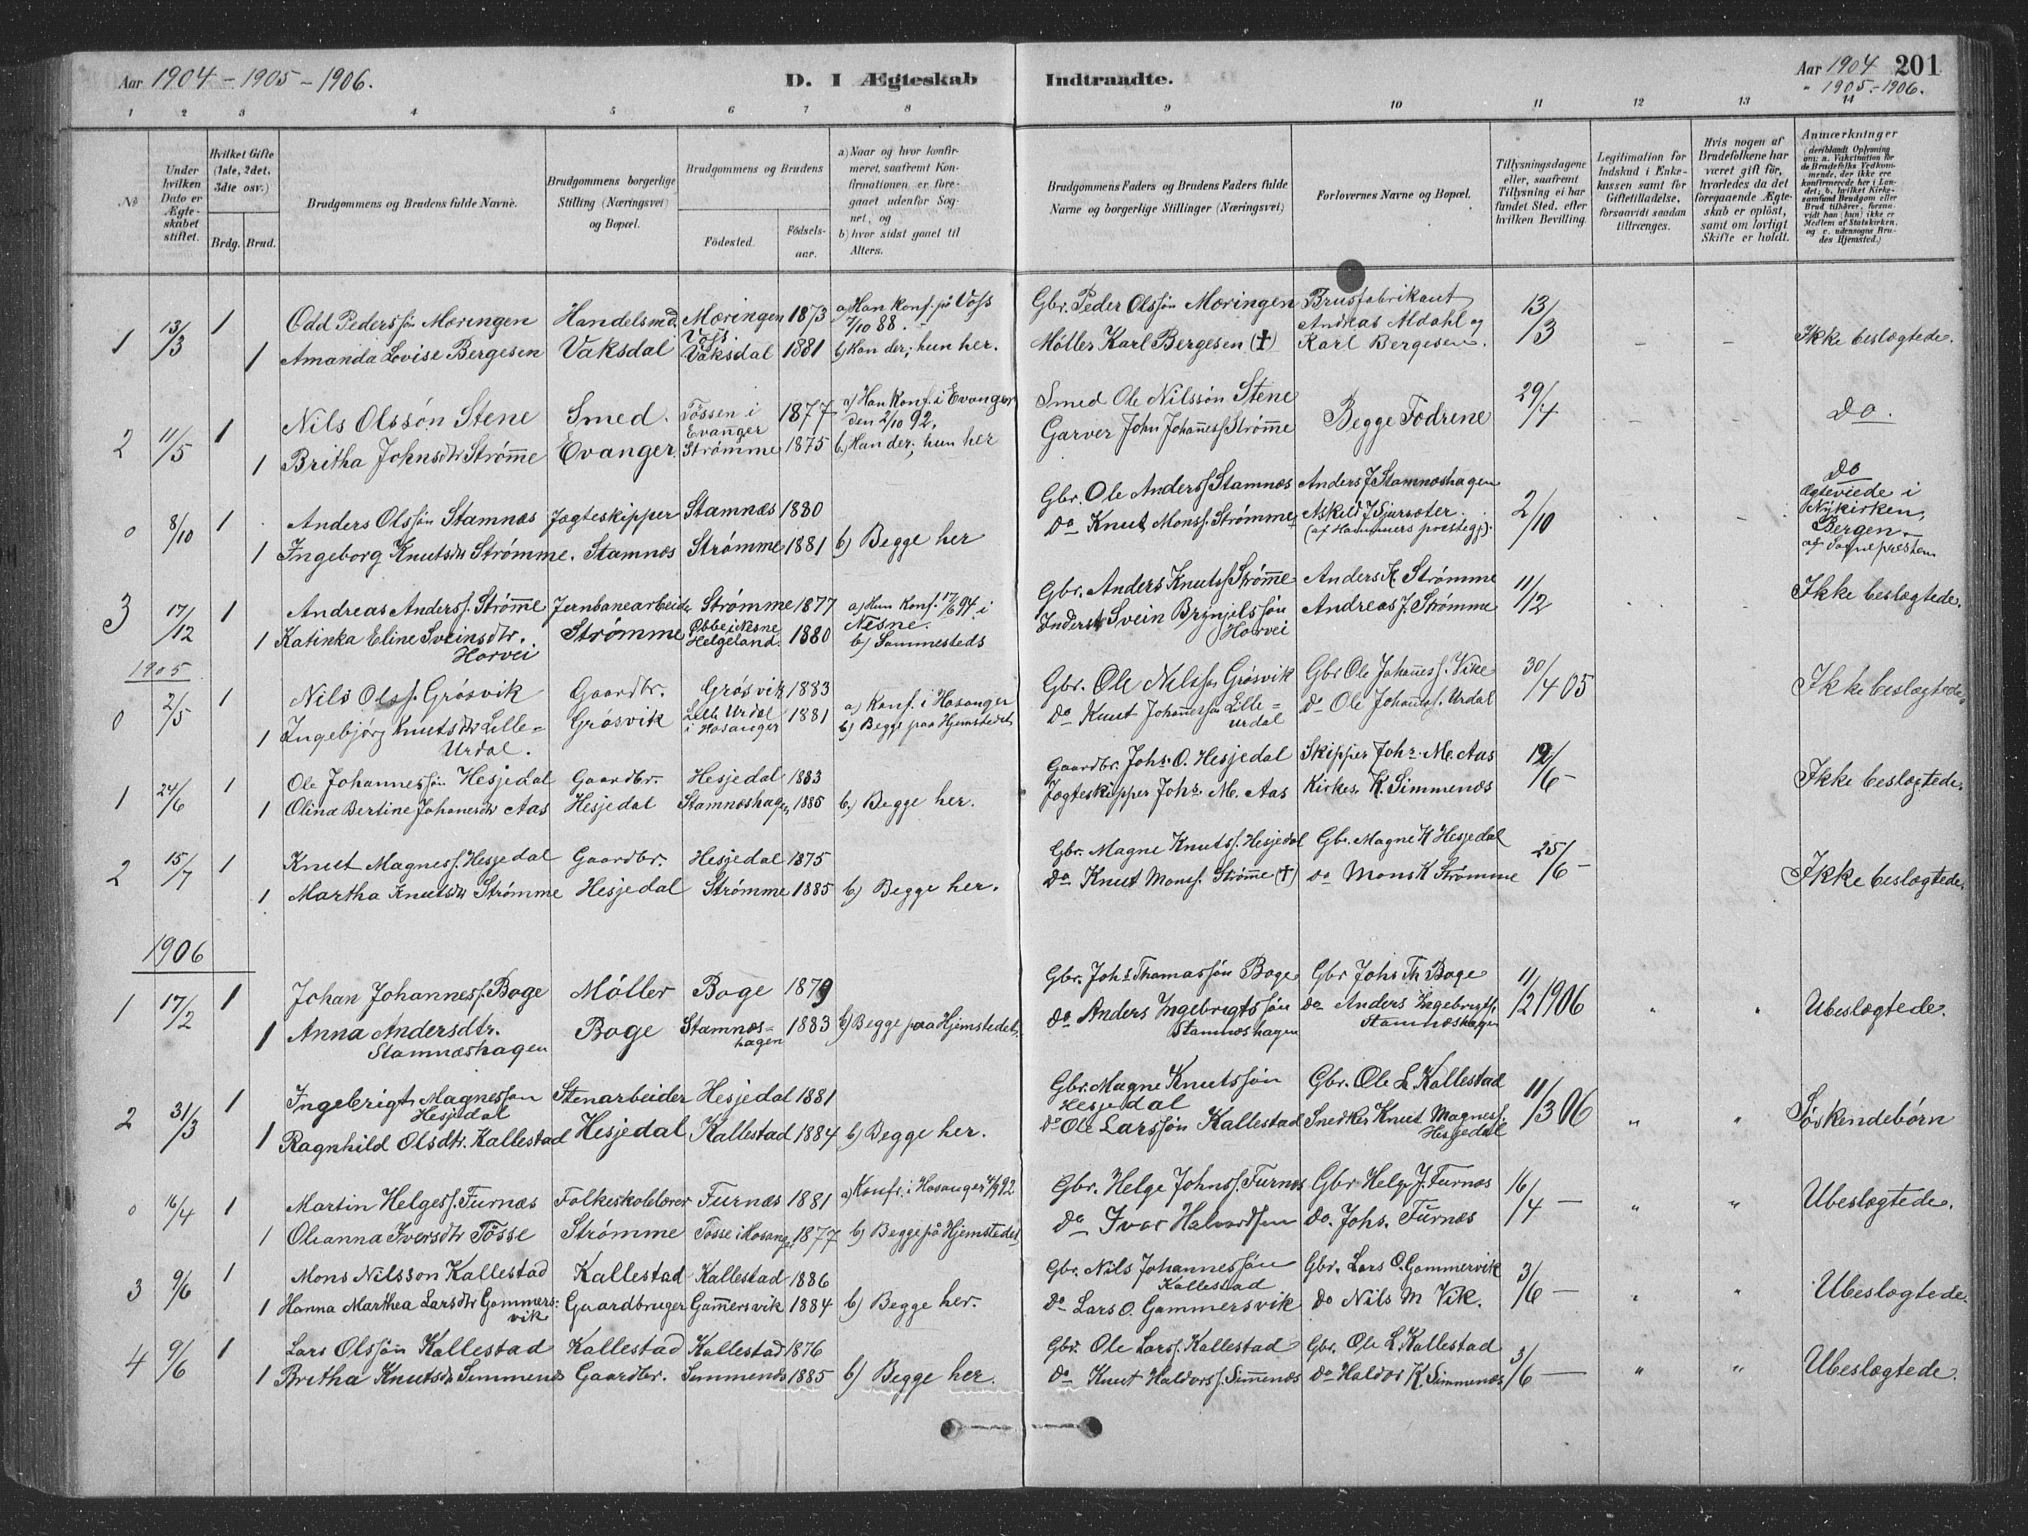 Aar 1904 - 1905 - 1906.
D. I Ægteskab Indtraadte.
Aar 1904 201
" 1905.-1906.
1 2 3 4 5 6 7 8 9 10 11 12 13 14
No
Under hvilken Dato er Ægteskabet stiftet.
Hvilket Gifte (1ste, 2det, 3die osv.)
Brdg. Brud.
Brudgommens og Brudens fulde Navne.
Brudgommens borgerlige Stilling (Næringsvei) og Bopæl.
Brudgommens og Brudens
Fødested.
Fødselsaar.
a) Naar og hvor konfirmeret, saafremt Konfirmationen er foregaaet udenfor Sognet, og
b) hvor sidst gaaet til Alters.
Brudgommens Faders og Brudens Faders fulde Navne og borgerlige Stillinger (Næringsvei)
Forlovernes Navne og Bopæl.
Tillysningsdagene eller, saafremt Tillysning ei har fundet Sted, efter hvilken Bevilling.
Legitimation for Indskud i Enkekassen samt for Giftetilladelse, forsaavidt saadan tiltrænges.
Hvis nogen af Brudefolkene har været gift før, hvorledes da det foregaaende Ægteskab er opløst, samt om lovligt Skifte er holdt.
Anmærkninger
(deriblandt Oplysning om: a. Vakcination for de Brudefolks Vedkommende, der ikke ere konfirmerede her i Landet; b. hvilket Kirkesamfund Brudgom eller Brud tilhører, forsaavidt han (hun) ikke er Medlem af Statskirken, og c. udensogns Brudes Hjemsted.)
1 13/3 1 Odd Pederssøn Mæringen Handelsmd. Mæringen Voss. 1873 a) Han konf. på Voss 7/10 88. Gbr. Peder Olssøn Mæringen Brusfabrikant Andreas Aldahl og 13/3
1 Amanda Lovise Bergesen Vaksdal Vaksdal 1881 b) Han der; hun her. Møller Karl Bergesen (†) Karl Bergesen. - - Ikke beslægtede.
2 11/5 1 Nils Olssøn Stene Smed. Tøssen i Evanger 1877 a) Han konf. i Evanger den 2/10 92. Smed Ole Nilssøn Stene Begge Fædrene 29/4 Do.
1 Britha Johnsdtr Strømme Evanger. Strømme 1875 b.) Han der; hun her Garver John Johanness. Strømme
0 8/10 1 Anders Olssøn Stamnæs Jægteskipper Stamnæs 1880 Gbr. Ole Anderss. Stamnæs Anders J Stamnæshagen 2/10 Do
1 Ingeborg Knutsdtr Strømme. Stamnæs Strømme 1881 b) Begge her Do Knut Monss. Strømme, Askeld J (af Hammers prestegj). Ægteviede i Nykirken, Bergen - af Sognepresten
3 17/12 1 Andreas Anderss. Strømme Jernbanearbeider Strømme 1877 a) Hun konf. 17/6 94. i Nesne. Gbr. Anders Knutss. Strømme Anders K. Strømme 11/12 Ikke beslægtede.
1 Katinka Eline Sveinsdtr. Horvei Strømme i Nesne Helgeland. 1880 b) Sammesteds Inderst Svein Brynjelssøn Horvei Andreas J Strømme
1905
0 2/5 1 Nils Olss. Grøsvik Gaardbr. Grøsvik 1883 a) Konf. i Hosanger Gbr. Ole Nelssøn Grøsvik Gbr Ole Johanness. Vike 30/4 05 Ikke beslægtede
1 Ingebjørg Knutsdtr Lille-Urdal. Grøsvik Lille Urdal i Hosanger 1881 b) Begge paa Hjemstedet Do Knut Johannessøn Lille-Urdal Do Ole Johans. Urdal
1 24/6 1 Ole Johannessøn Hesjedal Gaardbr. Hesjedal 1883 Gaardbr. Johs. O. Hesjedal Skipper Johs. M. Aas 12/6 - Ikke beslægtede
1 Olina Bertine Johanesdtr Aas Hesjedal Stamnæshagen 1885 b.) Begge her. Jægteskipper Johs. M. Aas Kirkes. K. Simmenæs
2 15/7 1 Knut Magness. Hesjedal Gaardbr. Hesjedal 1875 Gbr. Magne Knutss. Hesjedal Gbr. Magne K Hesjedal 25/6 - Ikke beslægtede
1 Martha Knutsdtr Strømme Hesjedal Strømme 1885 b) Begge her. Do Knut Monss. Strømme (†) Do Mons K Strømme
1906
1 17/2 1 Johan Johanness. Boge Møller Boge 1879 Gbr. Johs Thomassøn Boge Gbr Johs Th Boge 11/2 1906
1 Anna Andersdtr. Stamnæshagen Boge Stamnæshagen 1883 b) Begge paa Hjemstedet. Do Anders Ingebrigtssøn Stamnæshagen Do Anders Ingebrigts. Stamnæshagen " " Ubeslægtede.
2 31/3 1 Ingebrigt Magnessøn Hesjedal Stenarbeider Hesjedal 1881 Gbr. Magne Knutssøn Hesjedal Gbr. Ole L Kallestad 11/3 06 " " Søskendebørn
1 Ragnhild Olsdtr. Kallestad Hesjedal Kallestad 1884 b) Begge her. Do Ole Larssøn Kallestad Snedker Knut Magness. Hesjedal
0 16/4 1 Martin Helgess. Furnæs Folkeskolelærer Furnæs 1881 a) Konf. i Hosanger 4/9 92 Gbr. Helge Johnss. Furnæs Gbr Helge J. Furnæs 16/4 - " " Ubeslægtede.
1 Oleanna Iversdtr Tøsse Strømme Tøsse i Hosanger 1877 b) Begge på Hjemstedet Do Ivar Halvordsen Do. Johs. Furnæs
3 9/6 1 Mons Nilsson Kallestad Kallestad Kallestad 1886 Gbr. Nils Johannessøn Kallestad Gbr. Lars O. Gammersvik 3/6 - " " Ubeslægtede.
1 Hanna Marthea Larsdtr Gammersvik Gaardbruger Gammersvik 1884 b) Begge her. Do Lars O. Gammersvik Do Nils M Vik.
4 9/6 1 Lars Olssøn Kallestad Kallestad Kallestad 1876 Gbr. Ole Larss. Kallestad Gbr. Ole L Kallestad 3/6 - " " Ubeslægtede.
1 Britha Knutsdtr Simmenæs Gaardbr. Simmenæs 1885 b) Begge her. Do Knut Haldorss. Simmenæs Do Haldor K. Simmenæs